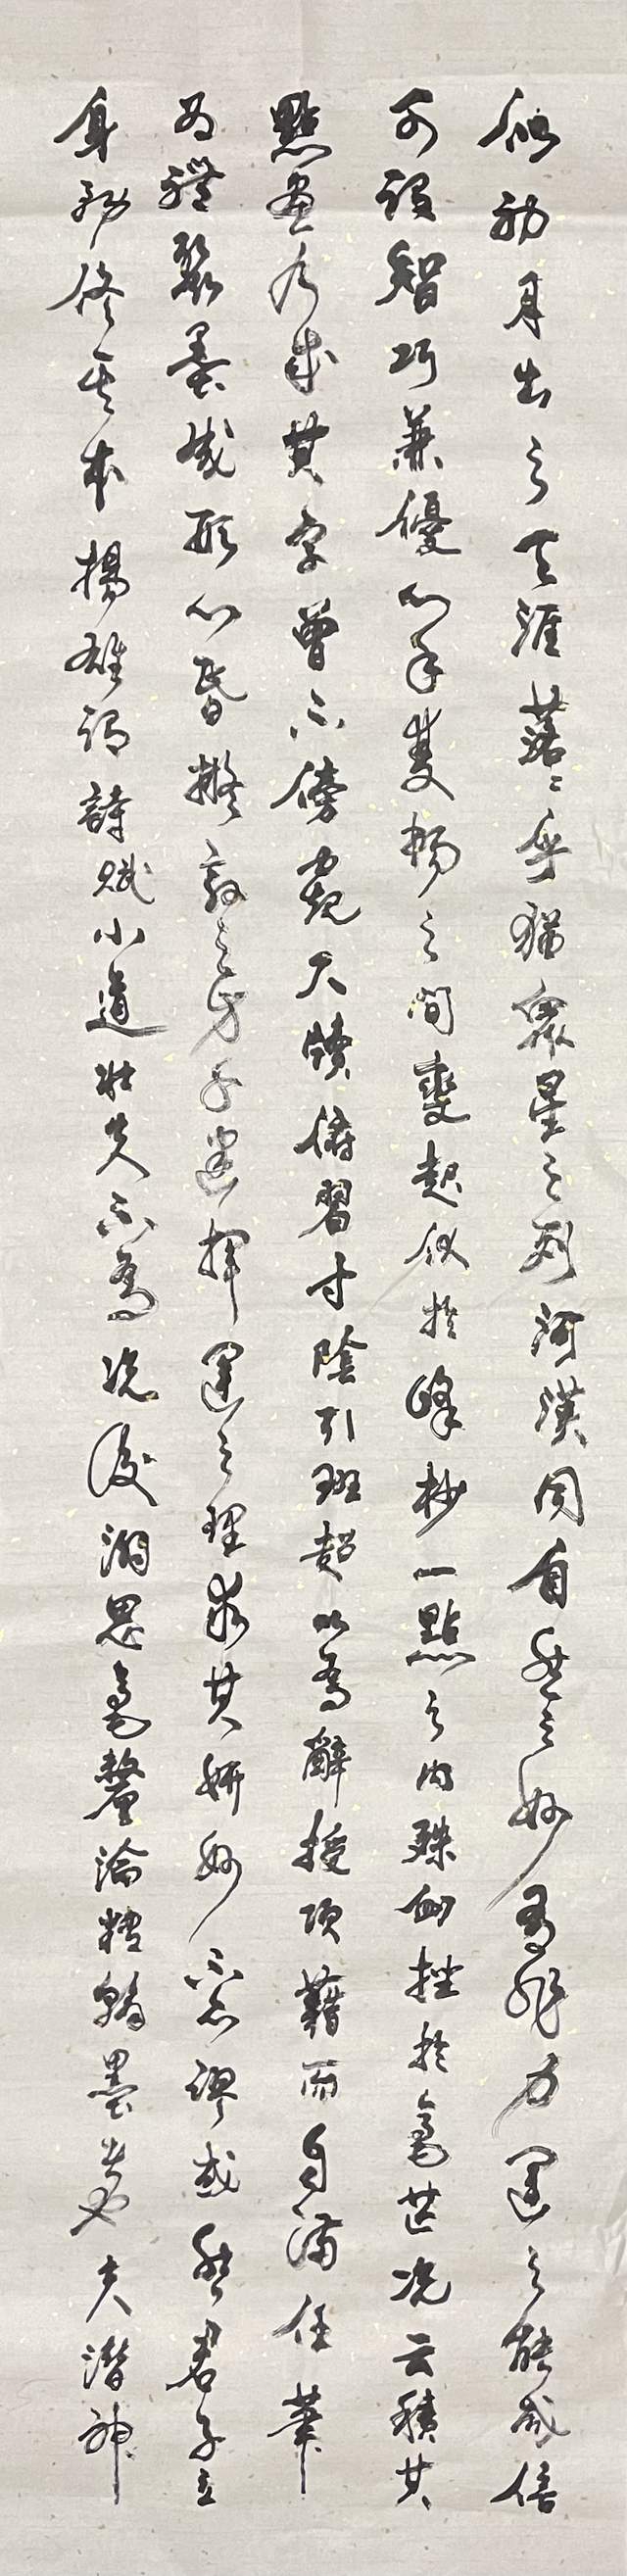 似初月出之天涯落〻乎猶眾星之列河漢同自然之妙有非力運之能成信
可謂智巧兼優心手雙暢之間變起伏於峰杪一點之內殊衄挫於毫芒況云積其
點畫乃成其字曾不傍窺尺牘俯習寸陰引班超以為辭援項籍而自滿任筆
為體聚墨成形心昏擬效之方手迷揮運之理求其妍妙不亦謬哉然君子立
身務修其本揚雄謂詩賦小道壯夫不為況復溺思毫釐淪精翰墨者也夫潛神